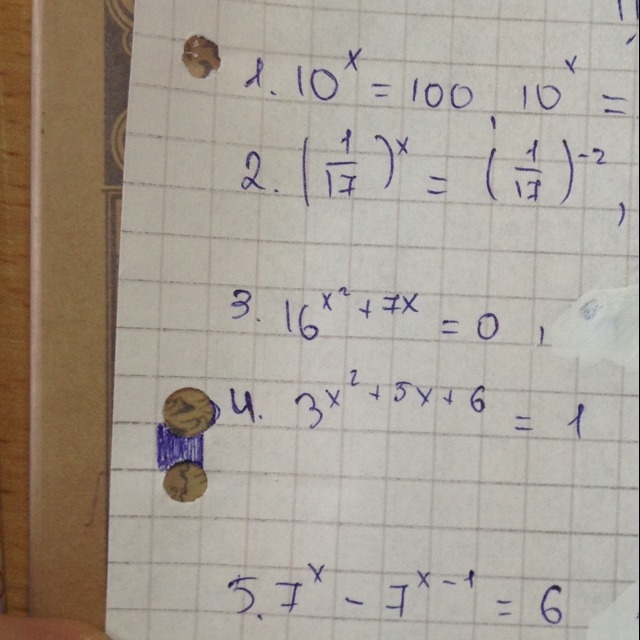 1. 10^x = 100, 10^x =
2. (1/17)^x = (1/17)^-2,
3. 16^x²+7x = 0,
4. 3^x²+5x+6 = 1
5. 7^x - 7^x-1 = 6